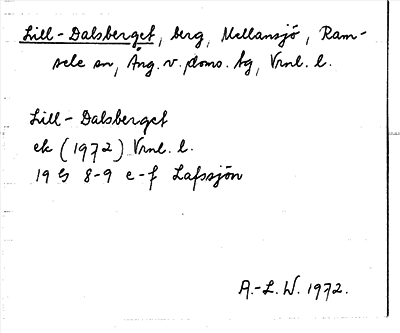 Lill-Dalsberget, berg, Mellansjö, Ram-
sele sn, Ång. v. doms. tg, Vrnl. l.
Lill-Dalsberget
ek (1972) Vrnl. l.
19 G 8-9 e-f Lafssjön
A.-L. W. 1972.